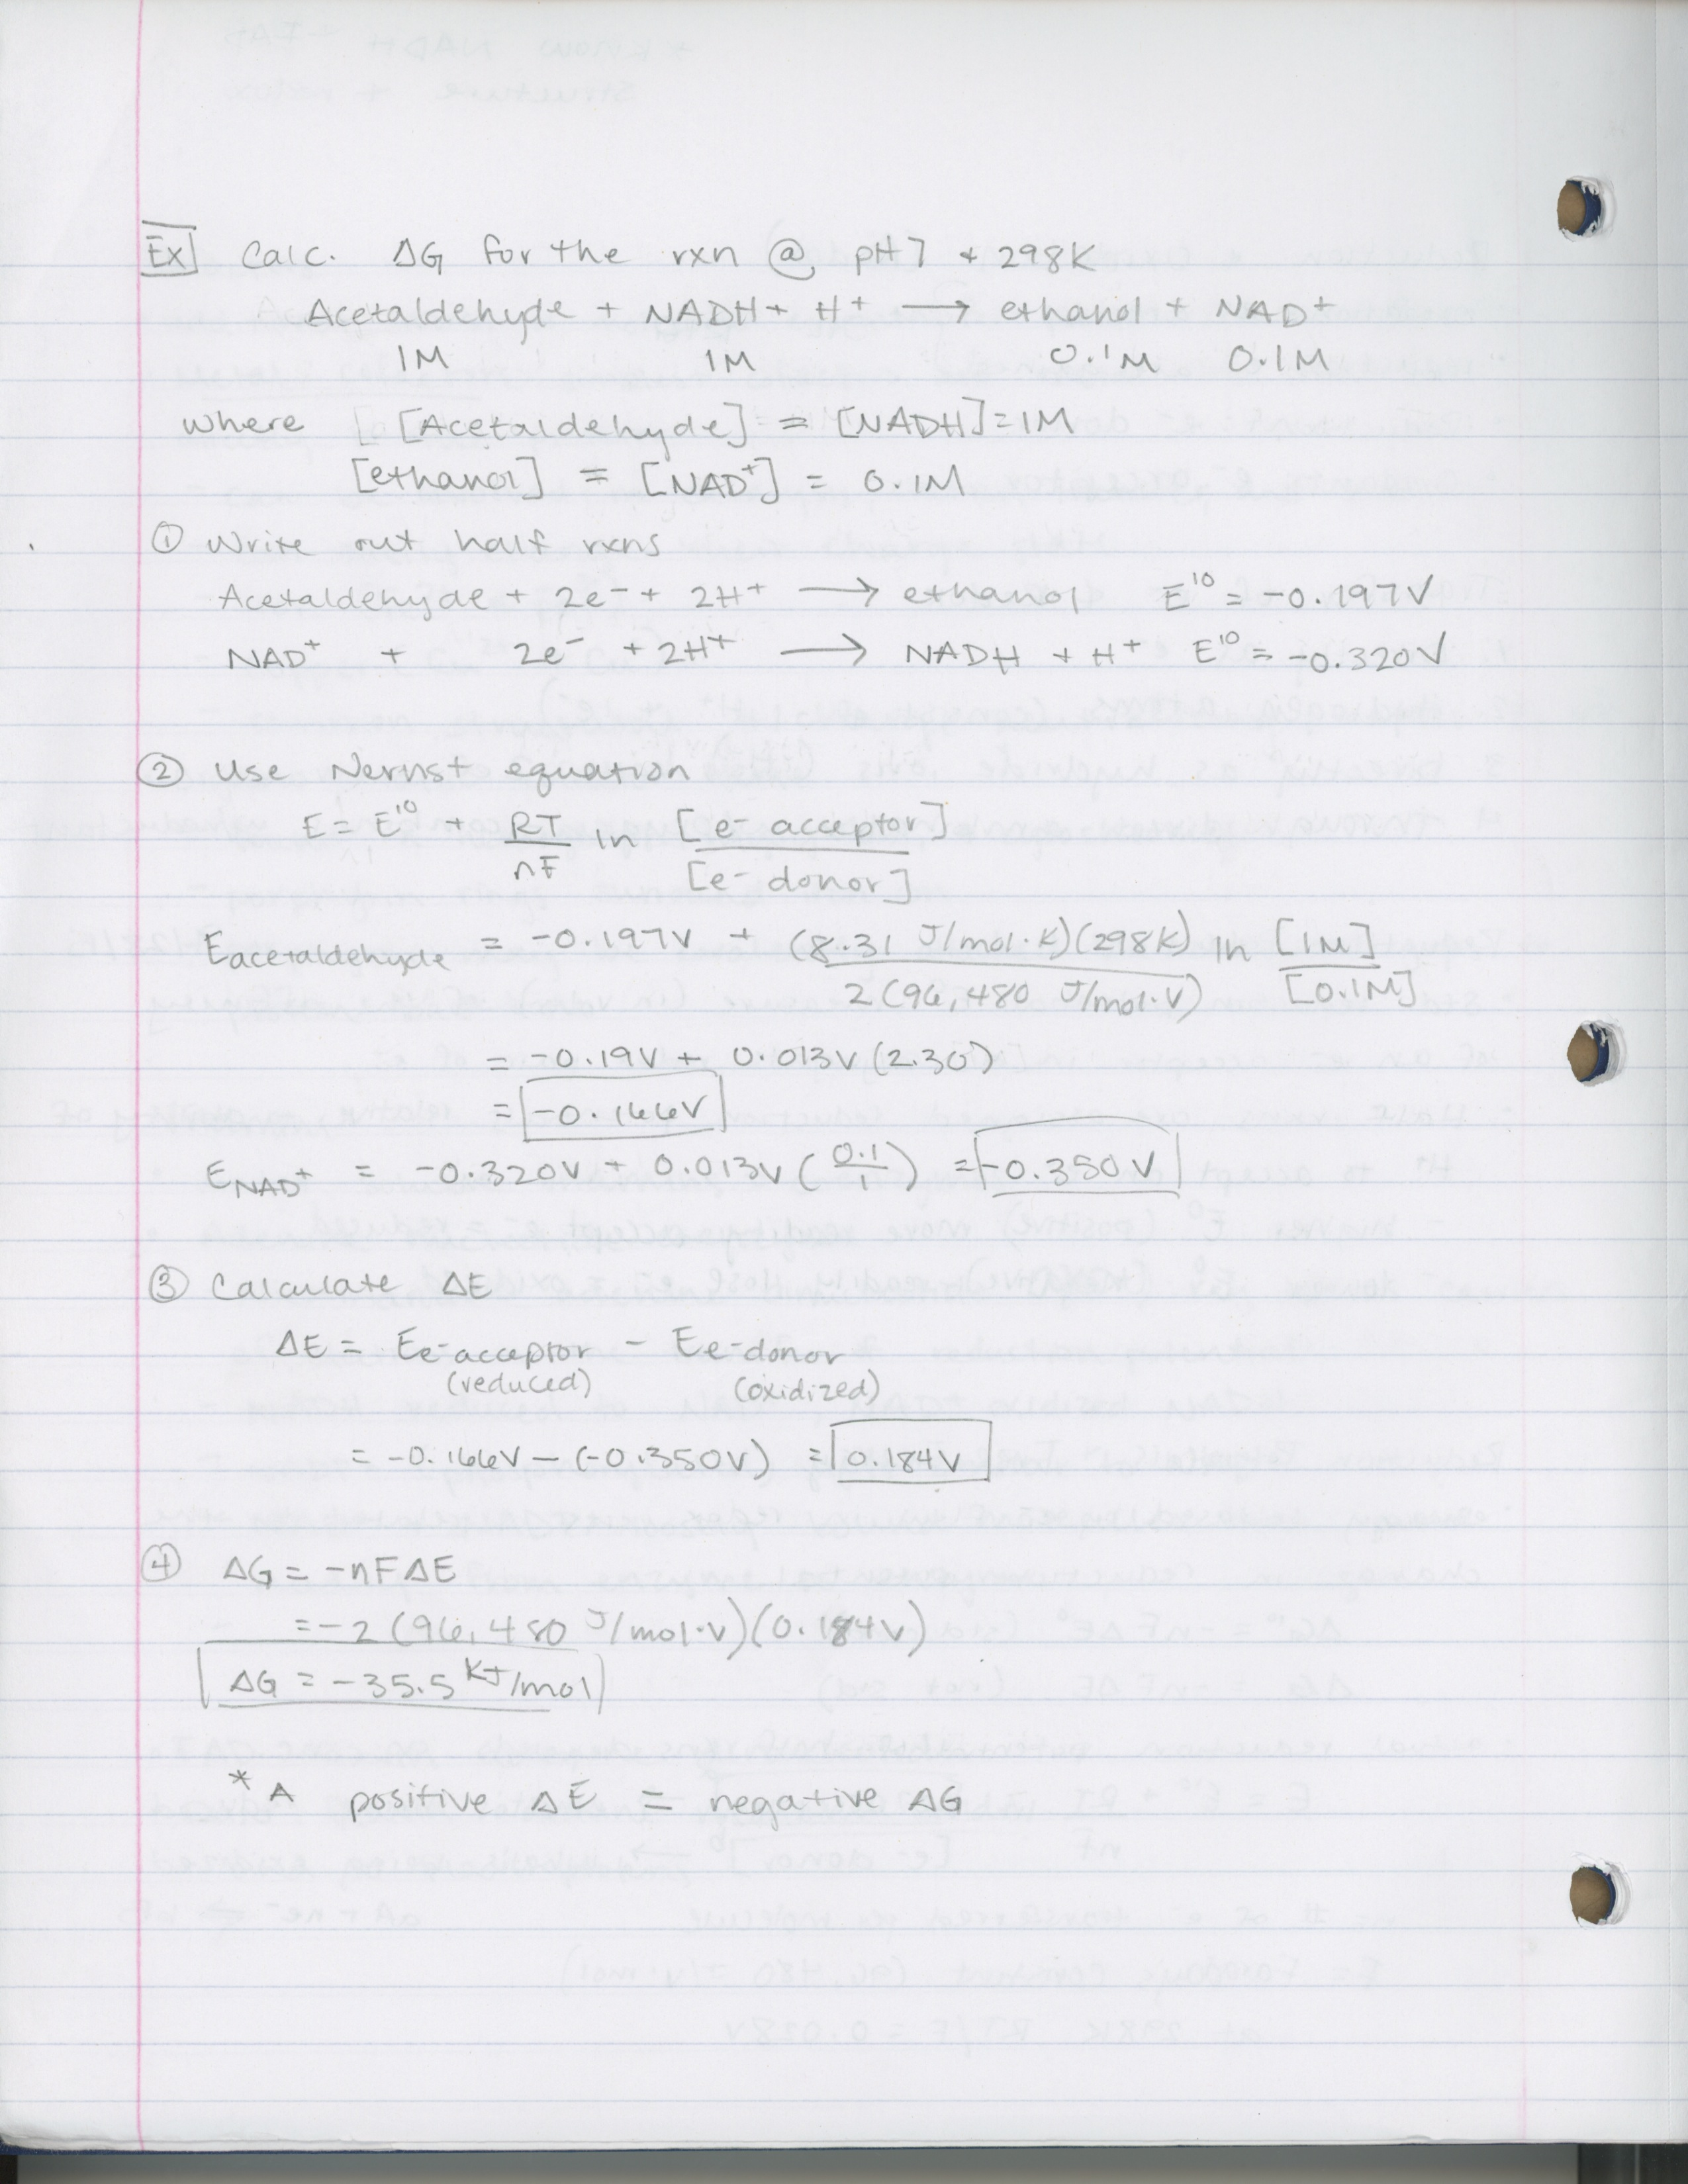 Ex Calc. ΔG for the rxn @ pH 7 + 298K
Acetaldehyde + NADH + H⁺ → ethanol + NAD⁺
1M 1M 0.1M 0.1M
where [ [Acetaldehyde] = [NADH] = 1M
[ethanol] = [NAD⁺] = 0.1M
① Write out half rxns
Acetaldehyde + 2e⁻ + 2H⁺ → ethanol E'⁰ = -0.197V
NAD⁺ + 2e⁻ + 2H⁺ → NADH + H⁺ E'⁰ = -0.320V
② Use Nernst equation
E = E'⁰ + RT/nF ln [e⁻ acceptor]/[e⁻ donor]
E acetaldehyde = -0.197V + (8.31 J/mol·K)(298K)/2(96,480 J/mol·V) ln [1M]/[0.1M]
= -0.19V + 0.013V (2.30)
= -0.166V
E NAD⁺ = -0.320V + 0.013V (0.1/1) = -0.350V
③ Calculate ΔE
ΔE = Ee⁻acceptor - Ee⁻donor
(reduced) (oxidized)
= -0.166V - (-0.350V) = 0.184V
④ ΔG = -nFΔE
= -2 (96,480 J/mol·V)(0.184V)
ΔG = -35.5 KJ/mol
* A positive ΔE = negative ΔG